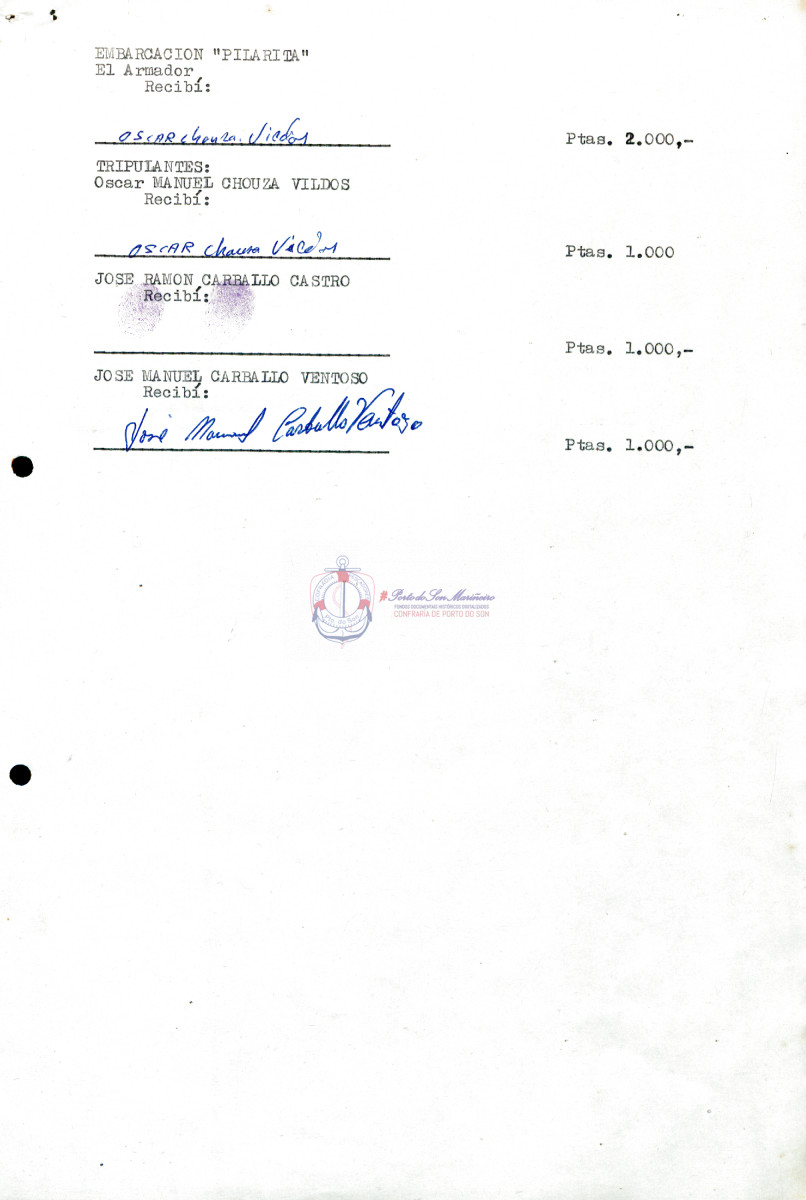 EMBARCACION "PILARITA"
El Armador
Recibí:
OSCAR chouza. Viedos
Ptas. 2.000,-
TRIPULANTES:
Oscar MANUEL CHOUZA VILDOS
Recibí:
OSCAR chouza Viedos
Ptas. 1.000
JOSE RAMON CARBALLO CASTRO
Recibí:
Ptas. 1.000,-
JOSE MANUEL CARBALLO VENTOSO
Recibí:
José Manuel Carballo Ventoso
Ptas. 1.000,-
#Porto do Son Mariñeiro
FONDOS DOCUMENTAIS HISTÓRICOS DIXITALIZADOS
CONFRARIA DE PORTO DO SON
Pto. do Son